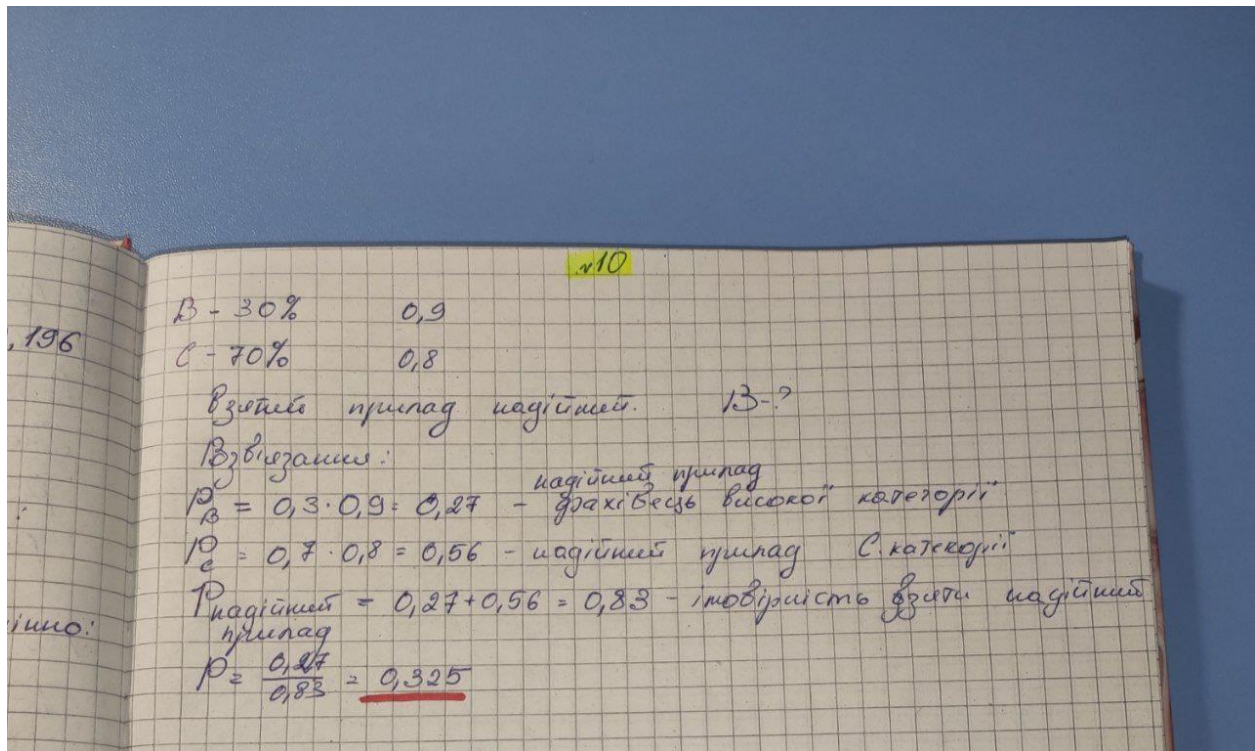 №10
В - 30% 0,9
, 196
С - 70% 0,8
Взятий прилад надійний. В-?
Взв'язання:
надійний прилад
P_B = 0,3 · 0,9 = 0,27 - фахівець високої категорії
P_C = 0,7 · 0,8 = 0,56 - надійний прилад С. категорії
P надійний = 0,27 + 0,56 = 0,83 - імовірність взяти надійний
прилад
інно:
P = 0,27/0,83 = 0,325